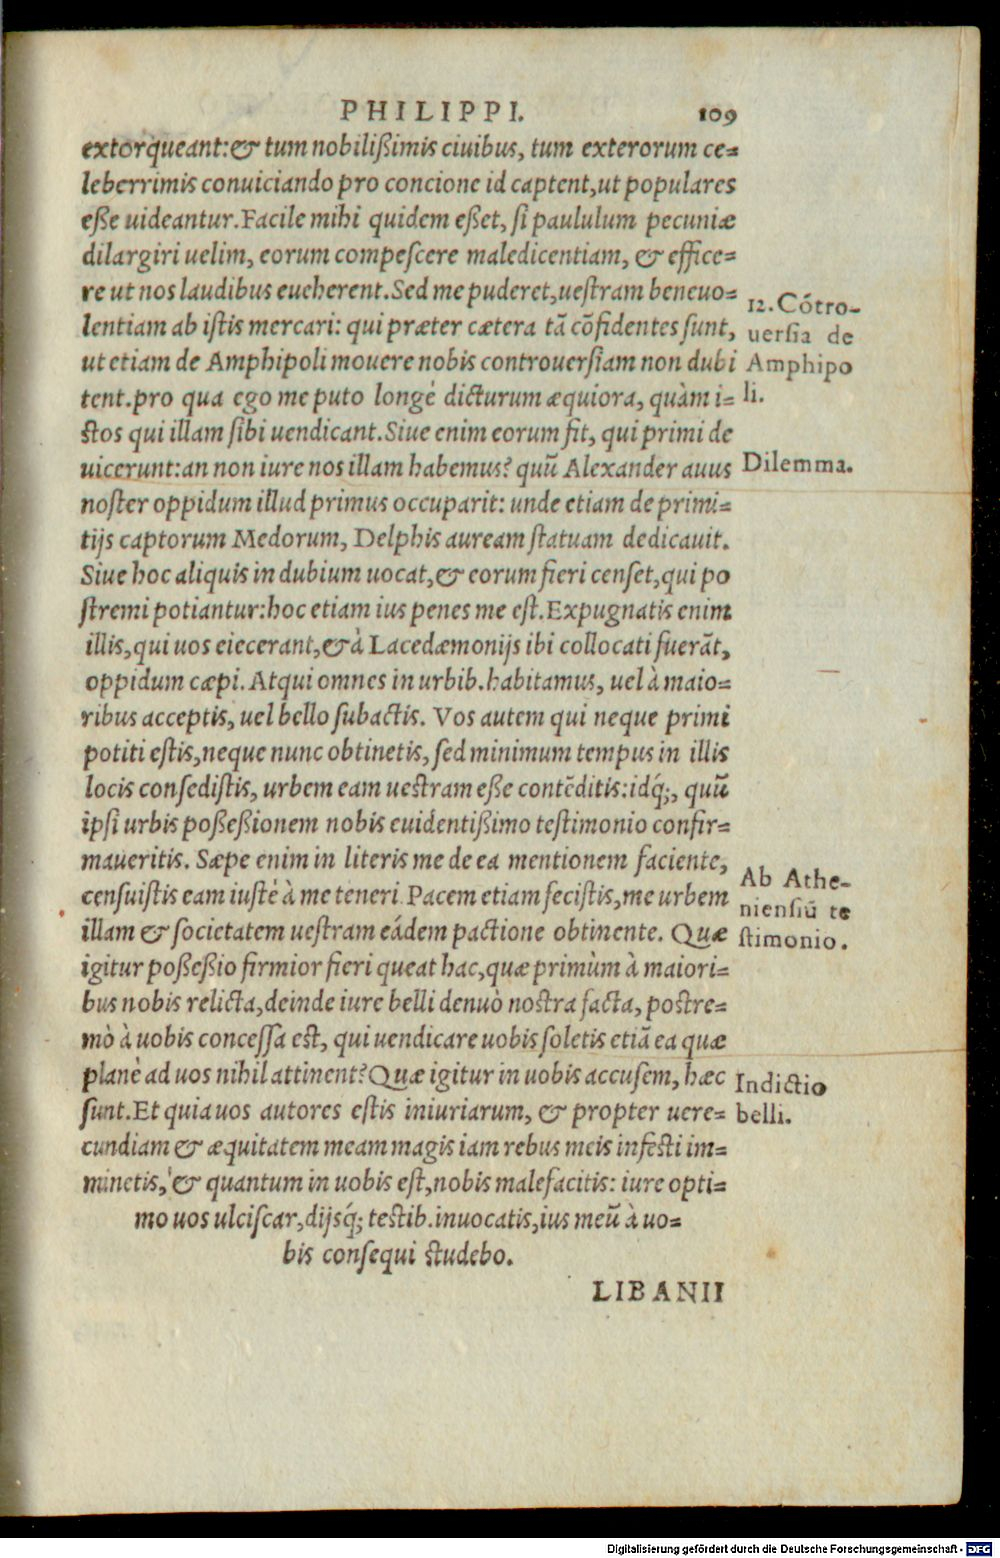 PHILIPPI. 109
extorqueant: & tum nobilißimis ciuibus, tum exterorum ce=
leberrimis conuiciando pro concione id captent, ut populares
eße uideantur. Facile mihi quidem eßet, ſi paululum pecuniæ
dilargiri uelim, eorum compeſcere maledicentiam, & effice=
re ut nos laudibus eueherent. Sed me puderet, ueſtram beneuo=
lentiam ab iſtis mercari: qui præter cætera tā cōfidentes ſunt,
ut etiam de Amphipoli mouere nobis controuerſiam non dubi
tent. pro qua ego me puto longè dicturum æquiora, quàm i=
ſtos qui illam ſibi uendicant. Siue enim eorum fit, qui primi de
uicerunt: an non iure nos illam habemus? quū Alexander auus
noſter oppidum illud primus occuparit: unde etiam de primi=
tijs captorum Medorum, Delphis auream ſtatuam dedicauit.
Siue hoc aliquis in dubium uocat, & eorum fieri cenſet, qui po
ſtremi potiantur: hoc etiam ius penes me eſt. Expugnatis enim
illis, qui uos eiecerant, & à Lacedæmonijs ibi collocati fuerāt,
oppidum cæpi. Atqui omnes in urbib. habitamus, uel à maio=
ribus acceptis, uel bello ſubactis. Vos autem qui neque primi
potiti eſtis, neque nunc obtinetis, ſed minimum tempus in illis
locis conſediſtis, urbem eam ueſtram eße contēditis: idq́;, quū
ipſi urbis poßeßionem nobis euidentißimo teſtimonio confir=
maueritis. Sæpe enim in literis me de ea mentionem faciente,
cenſuiſtis eam iuſtè à me teneri. Pacem etiam feciſtis, me urbem
illam & ſocietatem ueſtram eádem pactione obtinente. Quæ
igitur poßeßio firmior fieri queat hac, quæ primùm à maiori=
bus nobis relicta, deinde iure belli denuò noſtra facta, poſtre=
mò à uobis conceſſa eſt, qui uendicare uobis ſoletis etiā ea quæ
planè ad uos nihil attinent? Quæ igitur in uobis accuſem, hæc
ſunt. Et quia uos autores eſtis iniuriarum, & propter uere=
cundiam & æquitatem meam magis iam rebus meis infeſti im=
minetis, & quantum in uobis eſt, nobis malefacitis: iure opti=
mo uos ulciſcar, dijsq́; teſtib. inuocatis, ius meū à uo=
bis conſequi ſtudebo.
LIBANII
12. Cōtro-
uerſia de
Amphipo
li.
Dilemma.
Ab Athe-
nienſiū te
ſtimonio.
Indictio
belli.
Digitalisierung gefördert durch die Deutsche Forschungsgemeinschaft - DFG